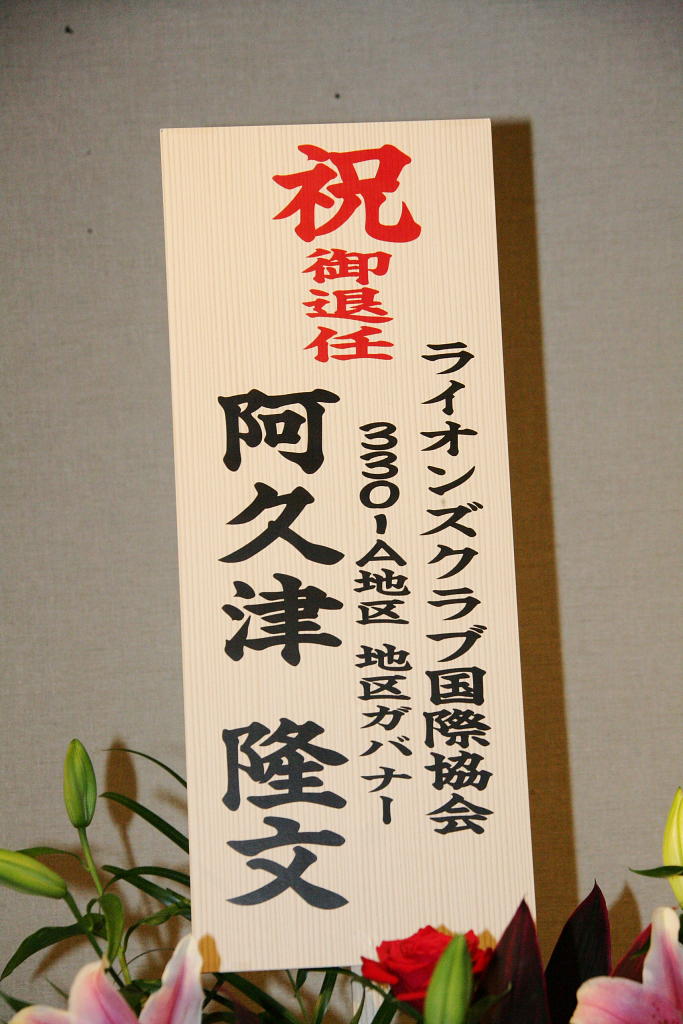 祝
御退任
ライオンズクラブ国際協会
330-A地区 地区ガバナー
阿久津 隆文